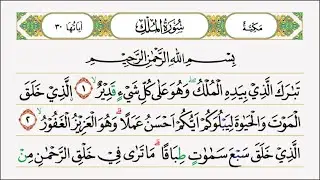 مَكِّيَّة سُورَةُ الْمُلْكِ آيَاتُهَا ٣٠
بِسْمِ اللَّهِ الرَّحْمَٰنِ الرَّحِيمِ
تَبَٰرَكَ الَّذِي بِيَدِهِ الْمُلْكُ وَهُوَ عَلَىٰ كُلِّ شَيْءٍ قَدِيرٌ ١ الَّذِي خَلَقَ
الْمَوْتَ وَالْحَيَوٰةَ لِيَبْلُوَكُمْ أَيُّكُمْ أَحْسَنُ عَمَلًا وَهُوَ الْعَزِيزُ الْغَفُورُ ٢
الَّذِي خَلَقَ سَبْعَ سَمَٰوَٰتٍ طِبَاقًا مَا تَرَىٰ فِي خَلْقِ الرَّحْمَٰنِ مِنْ